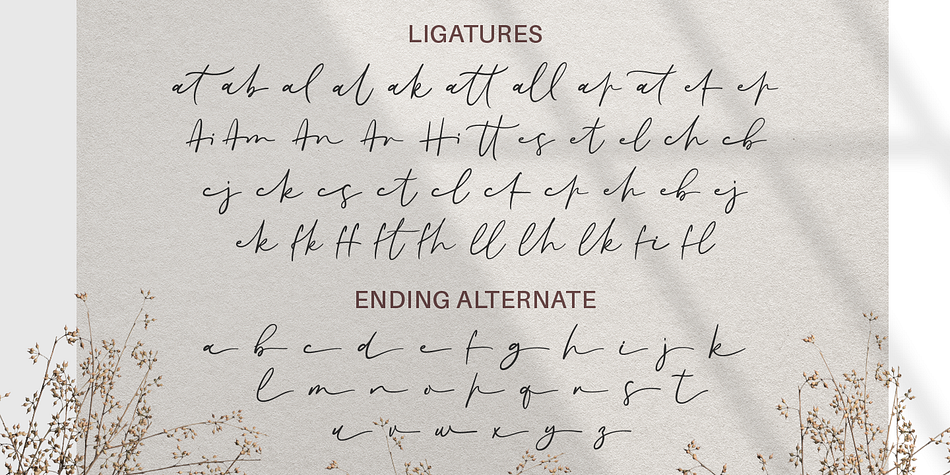 LIGATURES
at ab al al ak att all ap at ef ep
Ai Am An Ar Hi tt es et el ch cb
cj ck cs ct cl cf cp eh eb ej
ek fk ff ft fh ll lh lk fi fl
ENDING ALTERNATE
a b c d e f g h i j k
l m n o p q r s t
u v w x y z